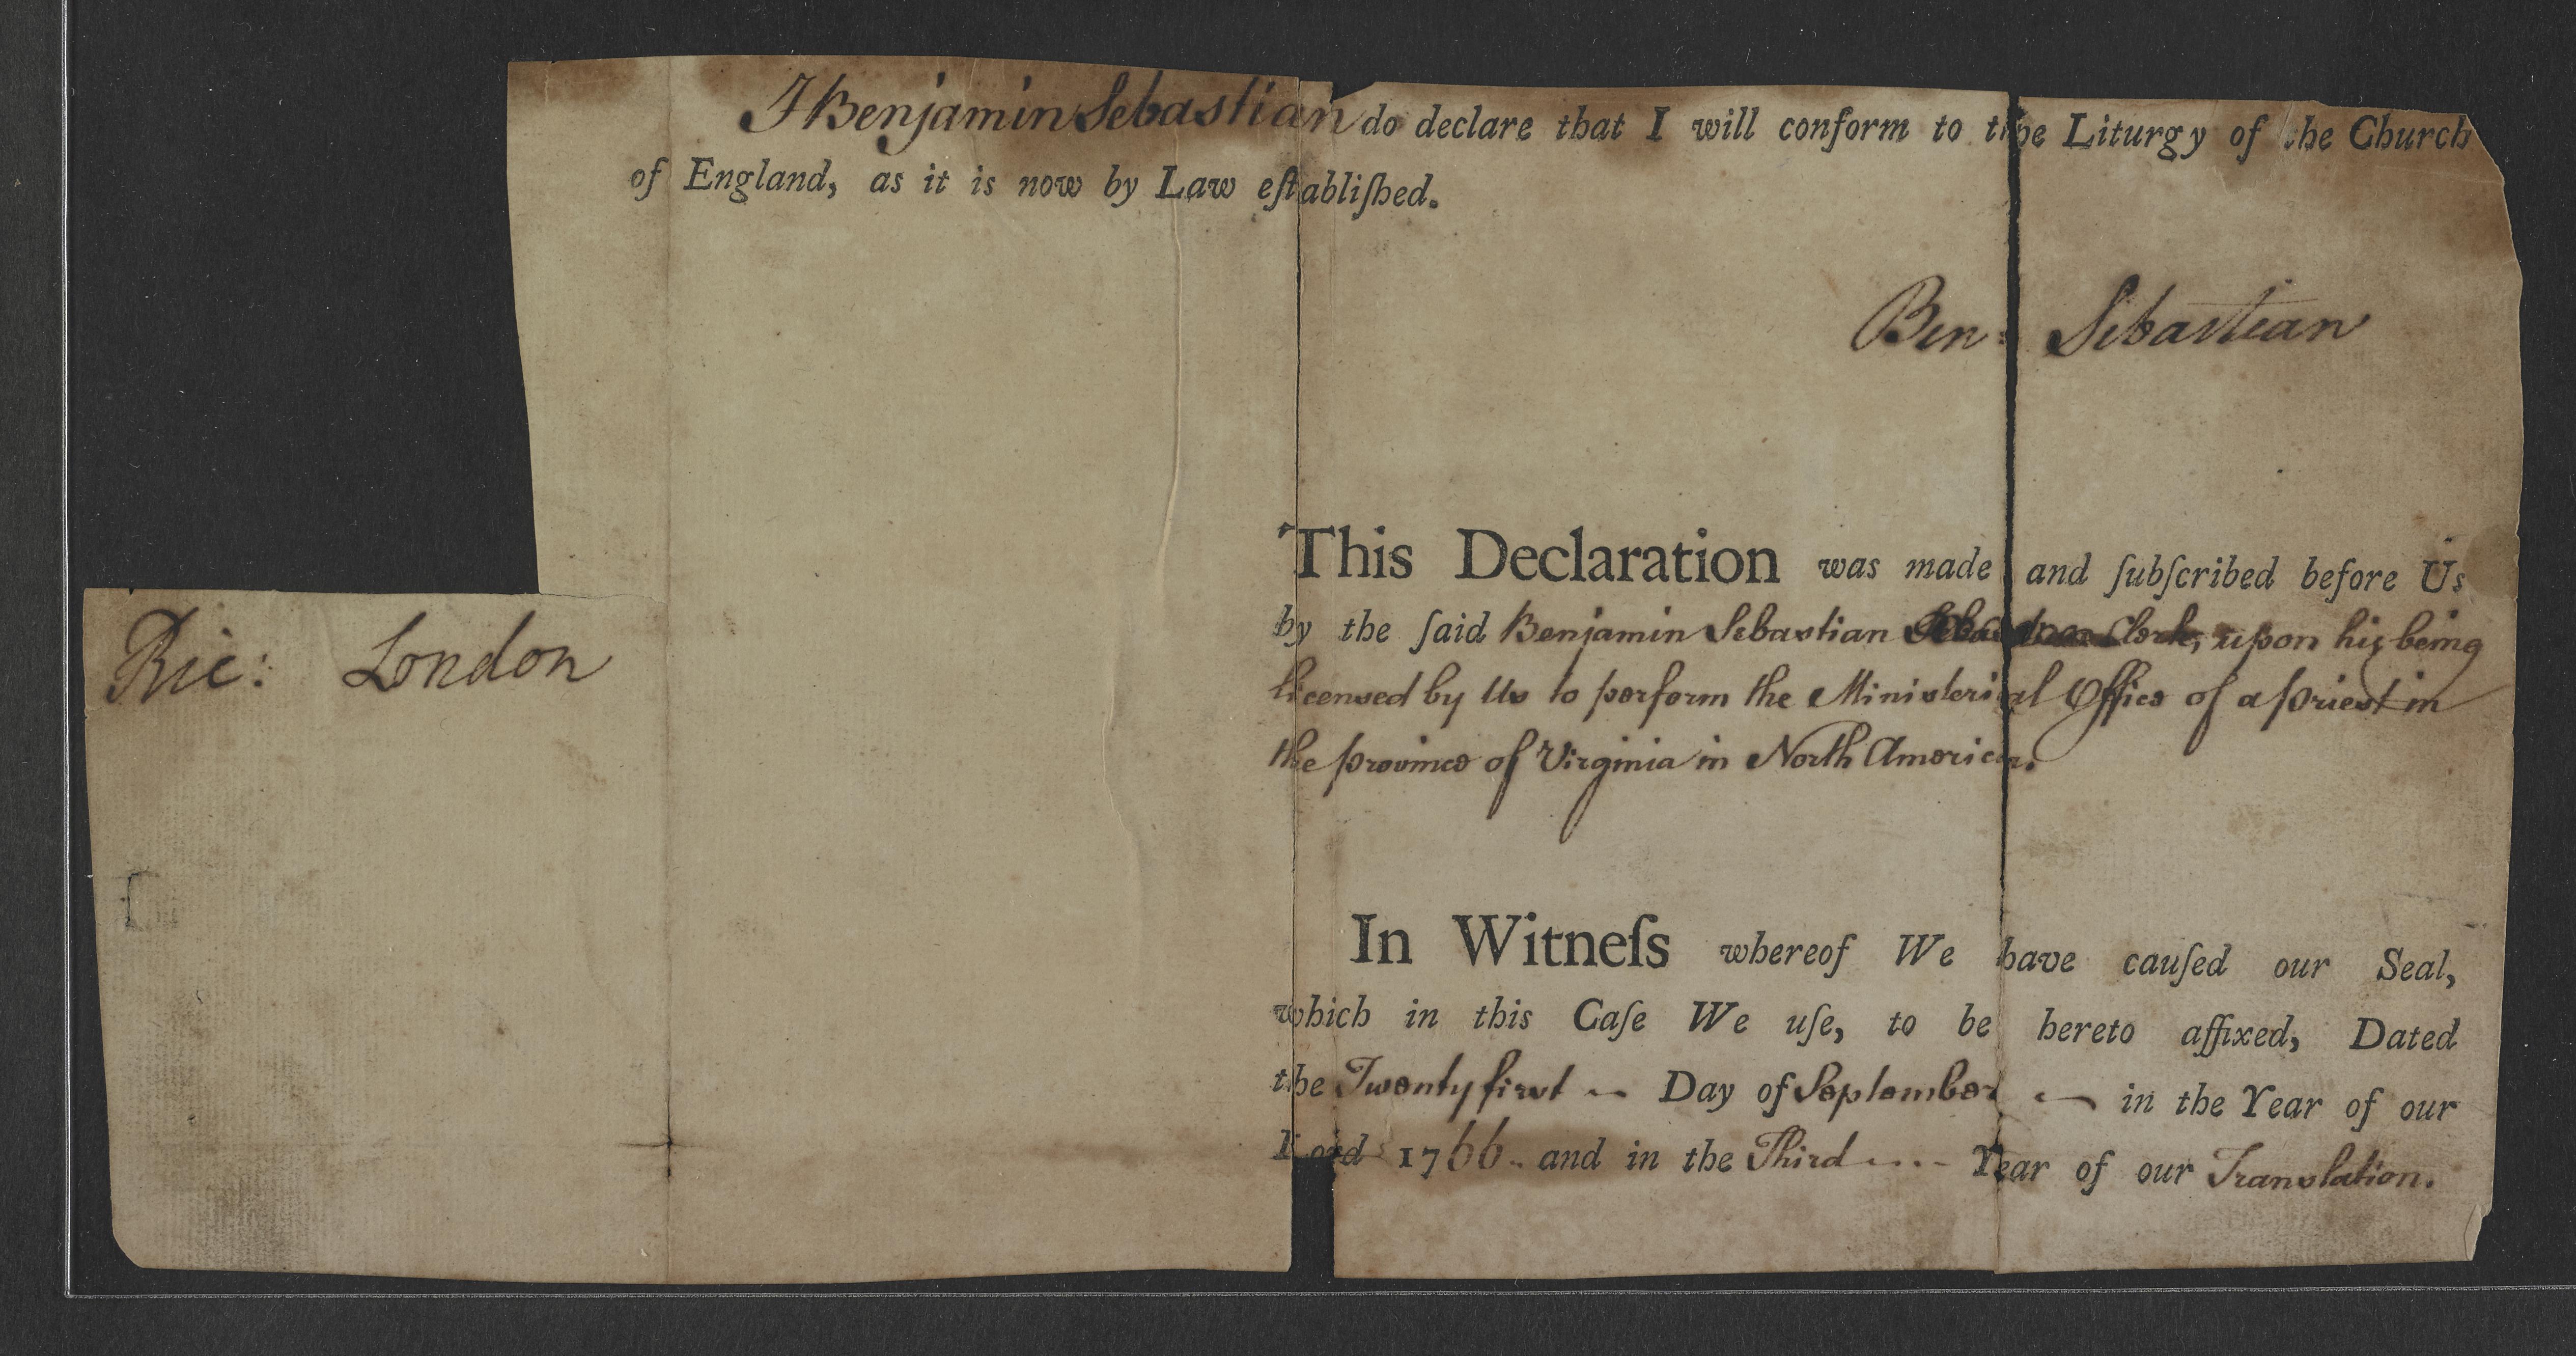 I Benjamin Sebastian do declare that I will conform to the Liturgy of the Church
of England, as it is now by Law eſtabliſhed.
Ben: Sebastian
This Declaration was made and ſubſcribed before Us
by the ſaid Benjamin Sebastian Clerk, upon his being
licensed by Us to perform the Ministerial Office of a priest in
the province of Virginia in North America.
Ric: London
In Witneſs whereof We have cauſed our Seal,
which in this Caſe We uſe, to be hereto affixed, Dated
the Twenty first Day of September in the Year of our
Lord 1766 and in the Third Year of our Translation.